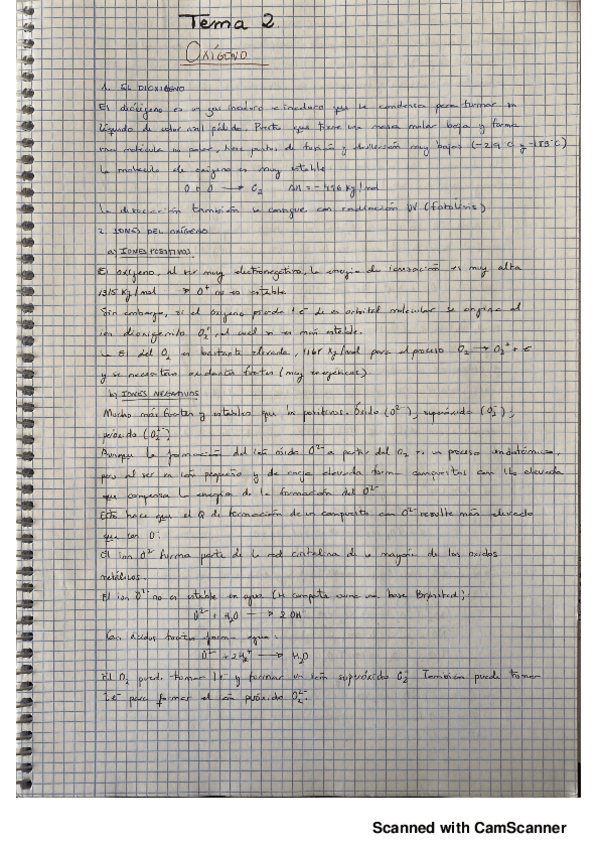 Tema 2
OXÍGENO
1. EL DIOXIGENO
El dioxígeno es un gas incoloro e inodoro que se condensa para formar un
líquido de color azul pálido. Puesto que tiene una masa molar baja y forma
una molécula no polar, tiene puntos de fusión y ebullición muy bajos
La molécula de oxígeno es muy estable.
O + O → O2 ΔH = - 496 Kj/mol
La disociación también se consigue con radiación UV (fotolisis)
2. IONES DEL OXÍGENO
a) IONES POSITIVOS.
El oxígeno, al ser muy electronegativo, la energía de ionización es muy alta
1315 Kj/mol → O+ no es estable
Sin embargo, si el oxígeno pierde 1 e- de un orbital molecular se origina el
ion dioxigenilo O2+, el cual es más estable.
La EI del O2 es bastante elevada, 1165 Kj/mol para el proceso O2 → O2+ + e
y se necesitan oxidantes fuertes (muy enérgicos).
b) IONES NEGATIVOS
Mucho más fuertes y estables que los positivos. Óxido (O2-), superóxido (O2-),
peróxido (O2 2-)
Aunque la formación del ión óxido O2- a partir del O2 es un proceso endotérmico,
pero al ser un ión pequeño y de carga elevada forma compuestos con elevada
que compensa la energía de la formación del O2-
Esto hace que el Q de formación de un compuesto con O2- resulte más elevado
que con O-.
El ion O2- forma parte de la red cristalina de la mayoría de los óxidos
metálicos.
El ion O2- no es estable en agua (se comporta como una base Brönsted);
O2- + H2O → 2 OH-
Con ácidos fuertes forma agua:
O2- + 2H+ → H2O
El O2 puede tomar 1e- y formar un ión superóxido O2-. También puede tomar
2e- para formar el ión peróxido O2 2-.
Scanned with CamScanner